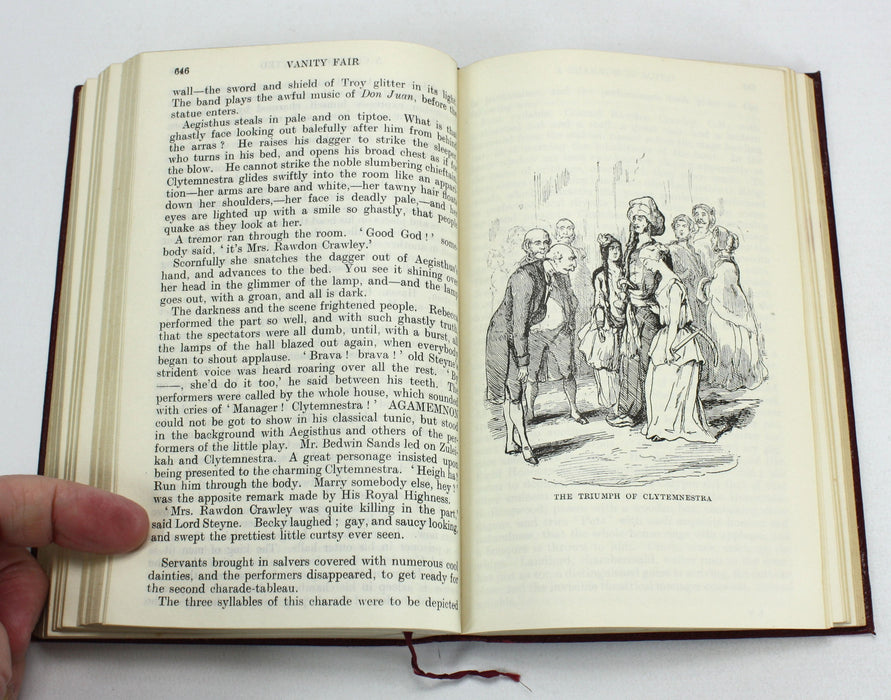 646
VANITY FAIR
wall—the sword and shield of Troy glitter in its light.
The band plays the awful music of Don Juan, before the
statue enters.
Aegisthus steals in pale and on tiptoe. What is that
ghastly face looking out balefully after him from behind
the arras? He raises his dagger to strike the sleeper,
who turns in his bed, and opens his broad chest as if for
the blow. He cannot strike the noble slumbering chieftain.
Clytemnestra glides swiftly into the room like an appari-
tion—her arms are bare and white,—her tawny hair floats
down her shoulders,—her face is deadly pale,—and her
eyes are lighted up with a smile so ghastly, that people
quake as they look at her.
A tremor ran through the room. ‘Good God!’ some-
body said, ‘it's Mrs. Rawdon Crawley.’
Scornfully she snatches the dagger out of Aegisthus's
hand, and advances to the bed. You see it shining over
her head in the glimmer of the lamp, and—and the lamp
goes out, with a groan, and all is dark.
The darkness and the scene frightened people. Rebecca
performed the part so well, and with such ghastly truth,
that the spectators were all dumb, until, with a burst, all
the lamps of the hall blazed out again, when everybody
began to shout applause. ‘Brava! brava!’ old Steyne's
strident voice was heard roaring over all the rest. ‘By
——, she'd do it too,’ he said between his teeth. The
performers were called by the whole house, which sounded
with cries of ‘Manager! Clytemnestra!’ AGAMEMNON
could not be got to show in his classical tunic, but stood
in the background with Aegisthus and others of the per-
formers of the little play. Mr. Bedwin Sands led on Zulei-
kah and Clytemnestra. A great personage insisted upon
being presented to the charming Clytemnestra. ‘Heigh ha?
Run him through the body. Marry somebody else, hey?’
was the apposite remark made by His Royal Highness.
‘Mrs. Rawdon Crawley was quite killing in the part,’
said Lord Steyne. Becky laughed; gay, and saucy looking,
and swept the prettiest little curtsy ever seen.
Servants brought in salvers covered with numerous cool
dainties, and the performers disappeared, to get ready for
the second charade-tableau.
The three syllables of this charade were to be depicted
THE TRIUMPH OF CLYTEMNESTRA